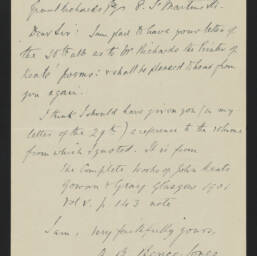 Grant Richards Esq 8. St Martin's St.
Dear Sir: I am glad to have your letter of
the 30th ult as to Mr Richards the Printer of
Keats' poems & shall be pleased to hear from
you again.
I think I should have given you (in my
letter of the 29th) a reference to the volume
from which I quoted. It is from
The Complete Works of John Keats
Gowan & Gray Glasgow 1901
Vol V. p 143 note
I am, Very faithfully yours,
A. B. Jones